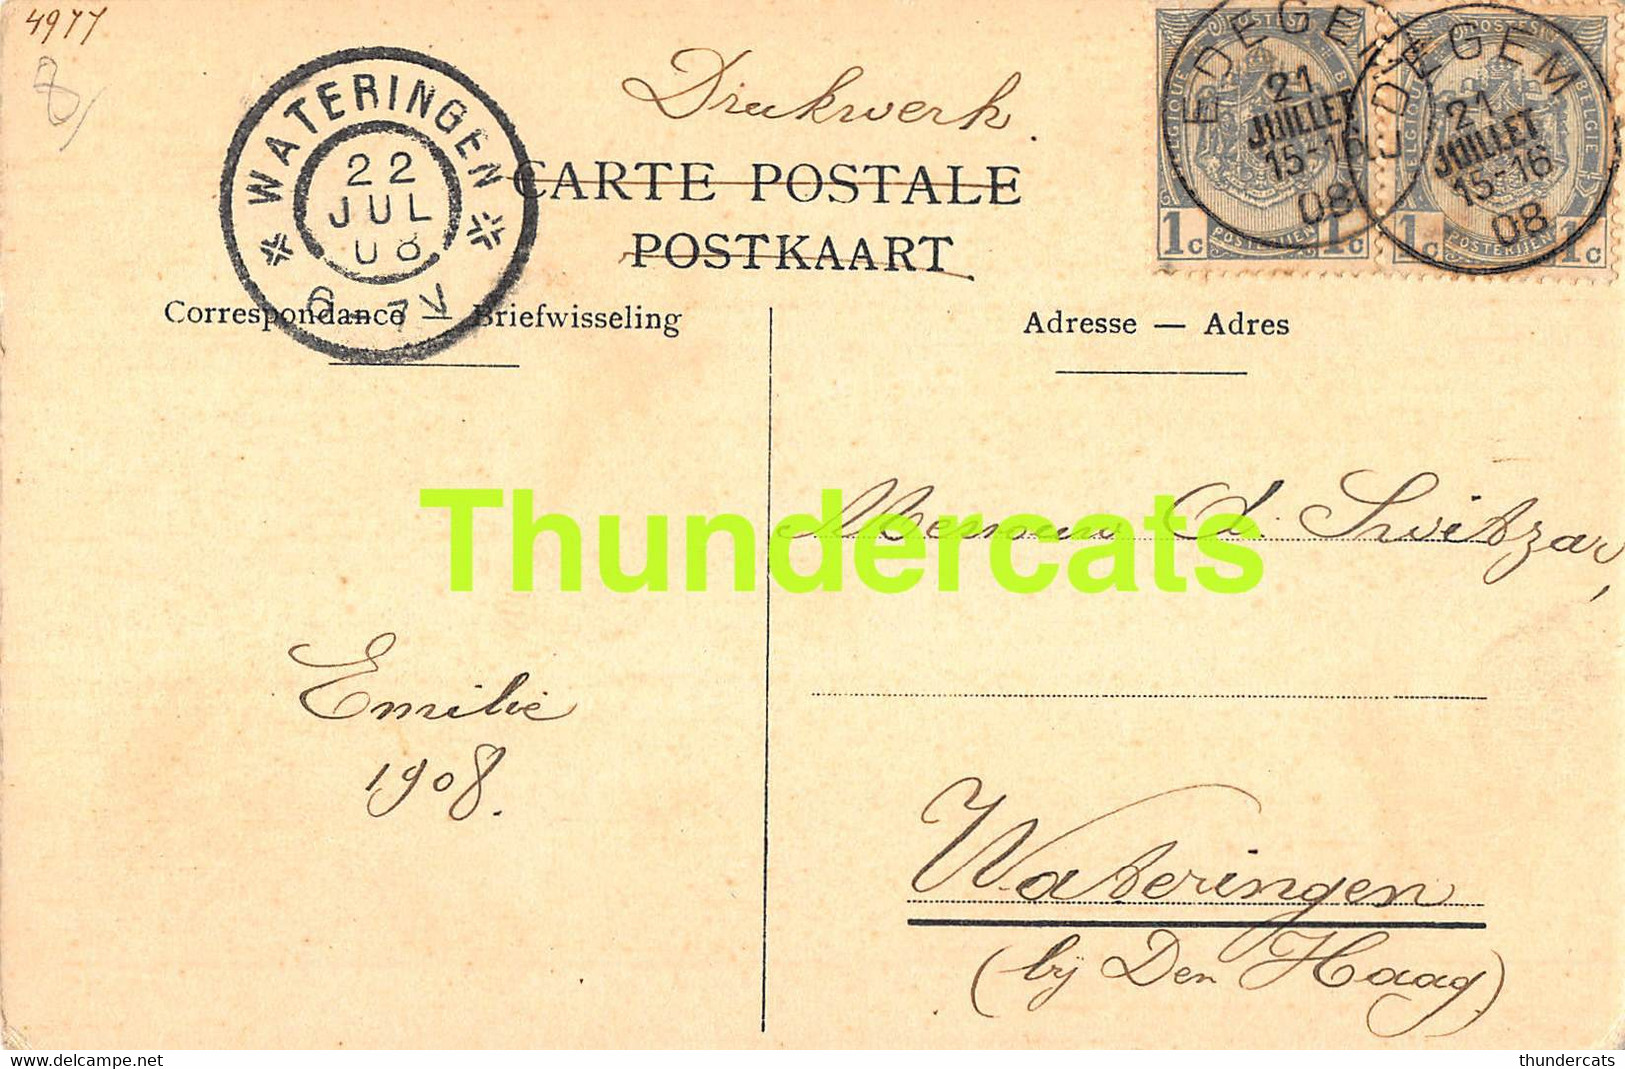 4977
8
WATERINGEN
22
JUL
08
6 - 7 V
Drukwerk.
CARTE POSTALE
POSTKAART
EDEGEM
21
JUILLET
15-16
08
EDEGEM
21
JUILLET
15-16
08
POSTES
BELGIQUE
BELGIE
1c POSTERIJEN 1c
1c POSTERIJEN 1c
Correspondance — Briefwisseling
Adresse — Adres
Thundercats
Mevrouw A. Switzar,
Emilie
1908.
Wateringen
(bij Den Haag)
delcampe.net
thundercats